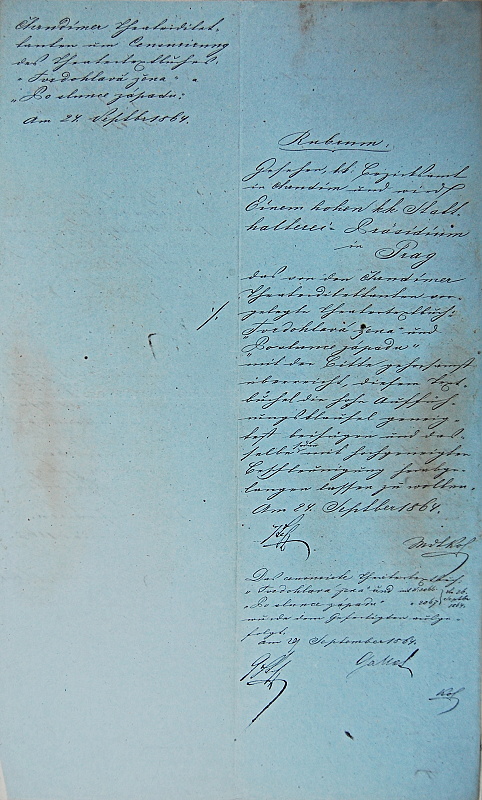 Chrudimer Theaterdilet-
tanten um Censurirung
des Theatertextbuches
"Tvrdohlavá žena" u
"Po slunce západu".
Am 24. Septber 1864.
Rubrum.
Gesehen, kk. Bezirksamt
in Chrudim und wird
Einem hohen kk Statt-
halterei-Präsidium
in
Prag
das von den Chrudimer
Theaterdilettanten vor-
gelegte Theatertextbuch:
"Tvrdohlavá žena" und
"Po slunce západu"
mit der Bitte gehorsamst
überreicht, diesem Text-
büchel die hohe Auffüh-
rungsklausel geneig-
test beifügen und das-
selbe mit hochgeneigter
Beschleunigung herab-
langen lassen zu wollen.
Am 24. Septber 1864.
Das censurirte Theatertextbuch
"Tvrdohlavá žena" und
"Po slunce západu"
wurde dem Gefertigten ausge-
folgt.
Am 29 September 1864.